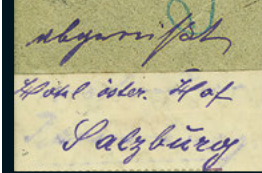 abgereist
Hotel öster. Hof
Salzburg